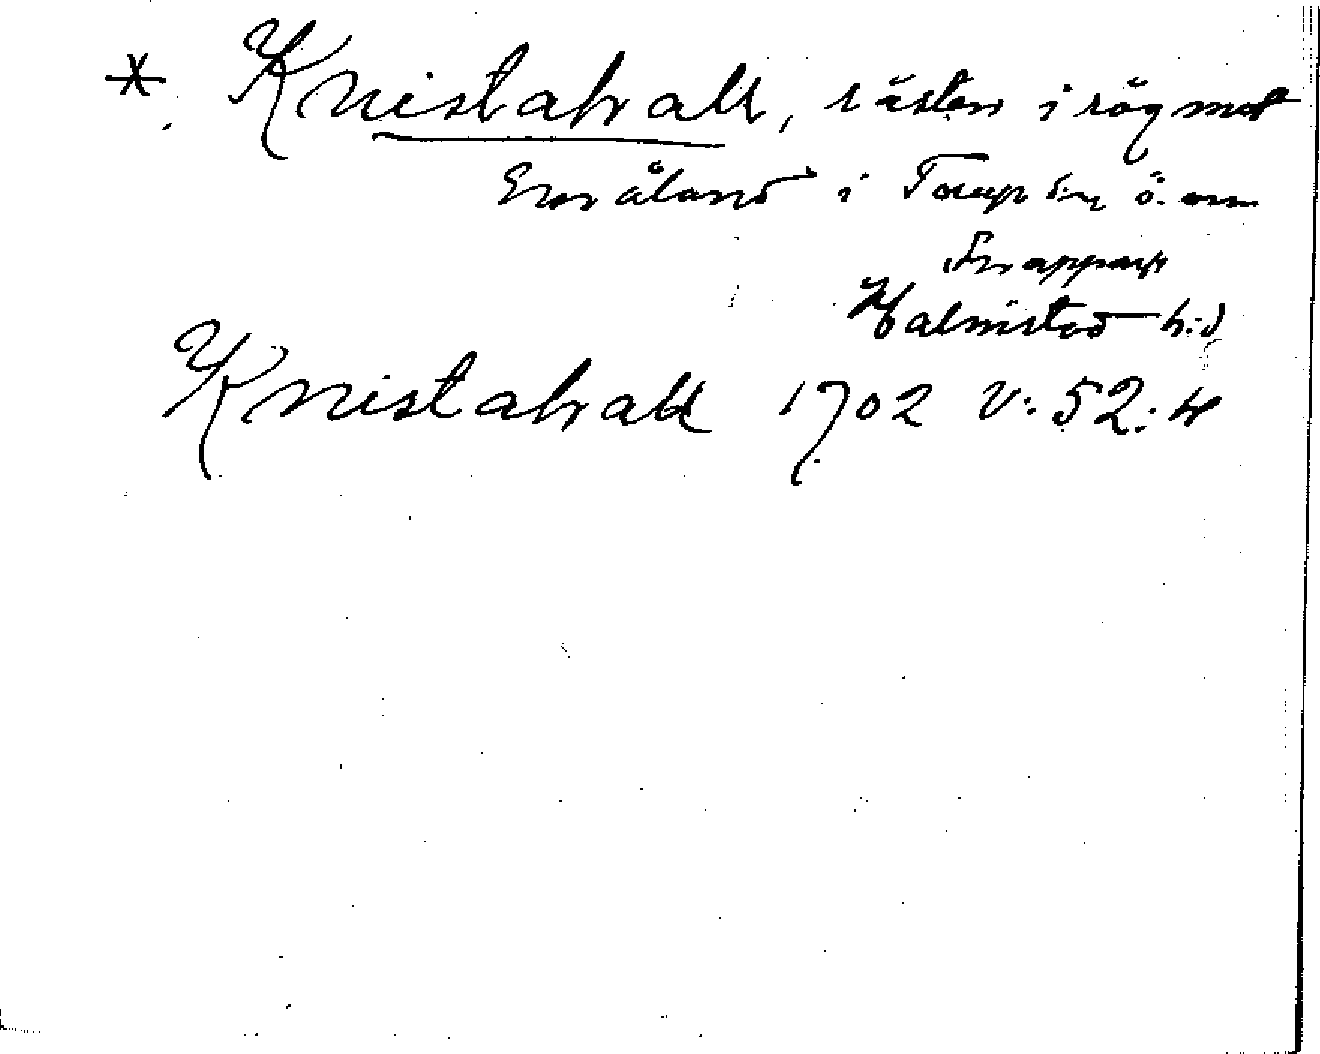 * Knistahall, rästen i rög mot
Småland i Torup sn ö. om
Knapparp
Halmstad h:d
Knistahall 1702 V: 52: 4